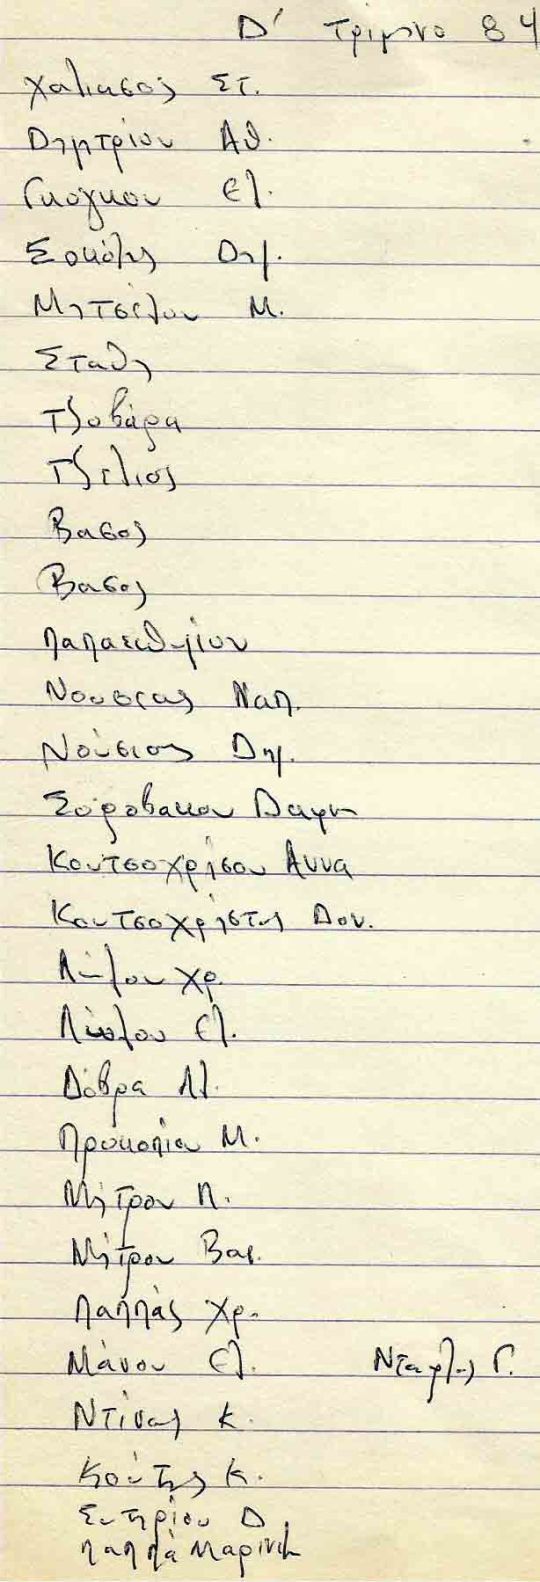 Δ' Τρίμηνο 84
Χαλιασος Στ.
Δημητρίου Αθ.
Γκόγκου Ελ.
Σουκόλης Δημ.
Μητσέλου Μ.
Σταθη
Τζοβάρα
Τζελιος
Βασος
Βασος
Παπαευθυμίου
Νουσιας Ναπ.
Νούσιας Δημ.
Κουτσοχρήσου Άννα
Κουτσοχρήστος Δον.
Χρ.
Ελ.
Δόβρα Αλ.
Προκοπίου Μ.
Μήτρου Π.
Μήτρου Βασ.
Παππάς Χρ.
Μάνου Ελ. Νταφλης Γ.
Ντίνας Κ.
Κούτης Κ.
Σωτηρίου Δ.
Παππά Μαρίνα